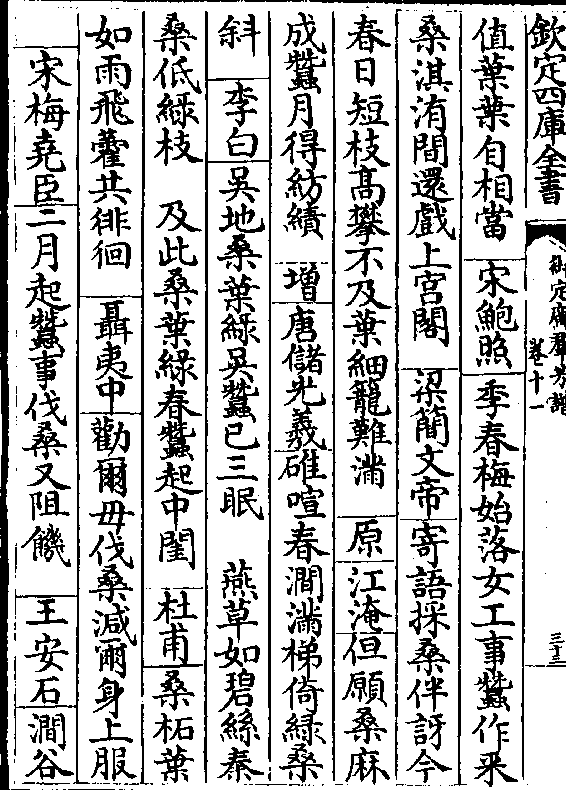 欽定四庫全書
御定廣群芳譜
卷十一
三十三
值葉葉自相當　宋鮑照季春梅始落女工事蠶作采
桑淇洧間還戲上宮閣　梁簡文帝寄語採桑伴訝今
春日短枝髙攀不及葉細籠難滿　原江淹但願桑麻
成蠶月得紡績　増唐儲光羲碓喧春澗滿梯倚緑桑
斜　李白吳地桑葉緑吳蠶已三眠　燕草如碧絲秦
桑低緑枝　及此桑葉緑春蠶起中閨　杜甫桑柘葉
如雨飛藿共徘徊　聶夷中勸爾毋伐桑減爾身上服
宋梅堯臣二月起蠶事伐桑又阻饑　王安石澗谷